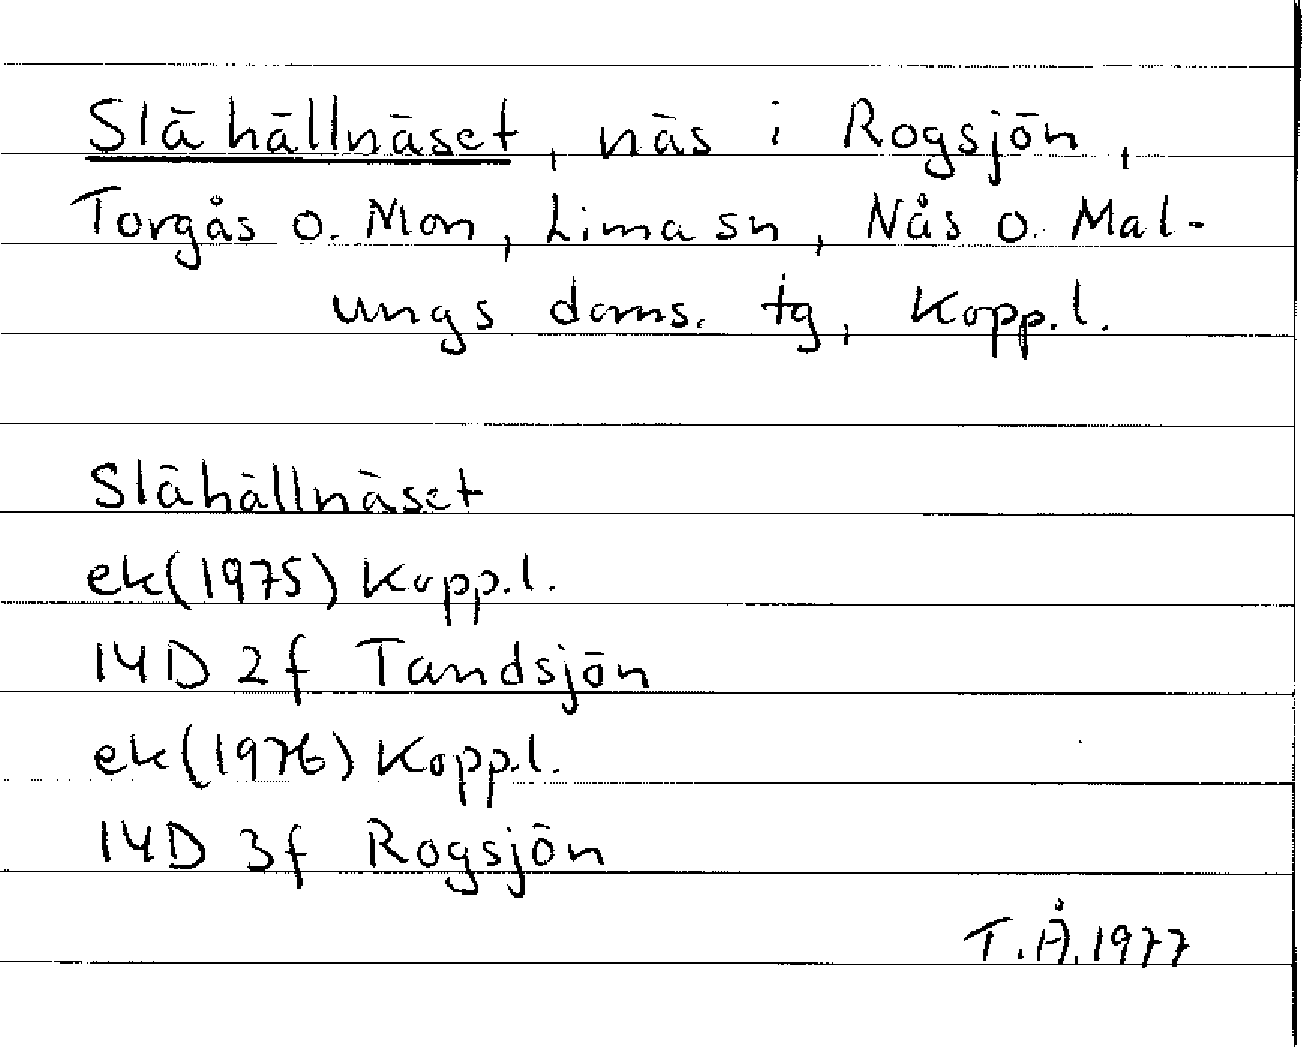 Slähällnäset, näs i Rogsjön,
Torgås o. Mon, Lima sn, Nås o. Mal-
ungs doms. tg, Kopp.l.
Slähällnäset
ek(1975) Kopp.l.
14D 2f Tandsjön
ek(1976) Kopp.l.
14D 3f Rogsjön
T.Å.1977